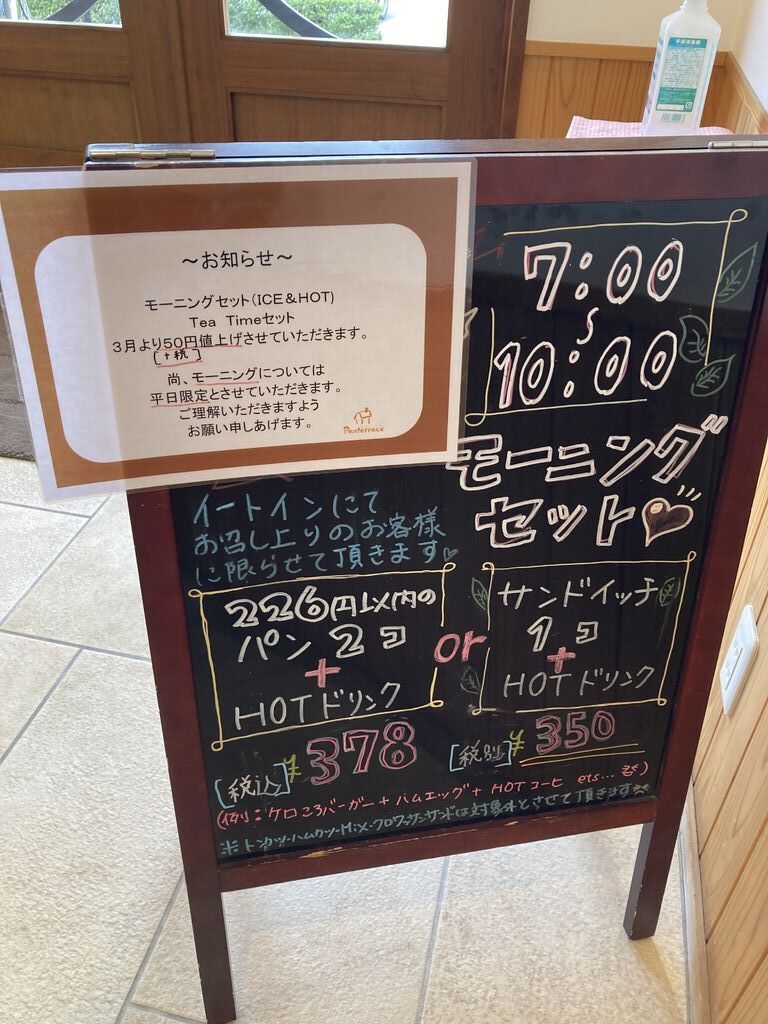 手指消毒剤
～お知らせ～
モーニングセット(ICE＆HOT)
Tea Timeセット
3月より50円値上げさせていただきます。
[+税]
尚、モーニングについては
平日限定とさせていただきます。
ご理解いただきますよう
お願い申しあげます。
Panterrace
7:00
～
10:00
モーニング
セット♡
イートインにて
お召し上りのお客様
に限らせて頂きます♡
226円以内の
パン2コ
+
HOTドリンク
or
サンドイッチ
1コ
+
HOTドリンク
[税込]¥378
[税別]¥350
(例:ケロころバーガー+ハムエッグ+HOTコーヒ ets...)
※トンカツ・ハムカツ・Mix・クロワッサンサンドは対象外とさせて頂きます